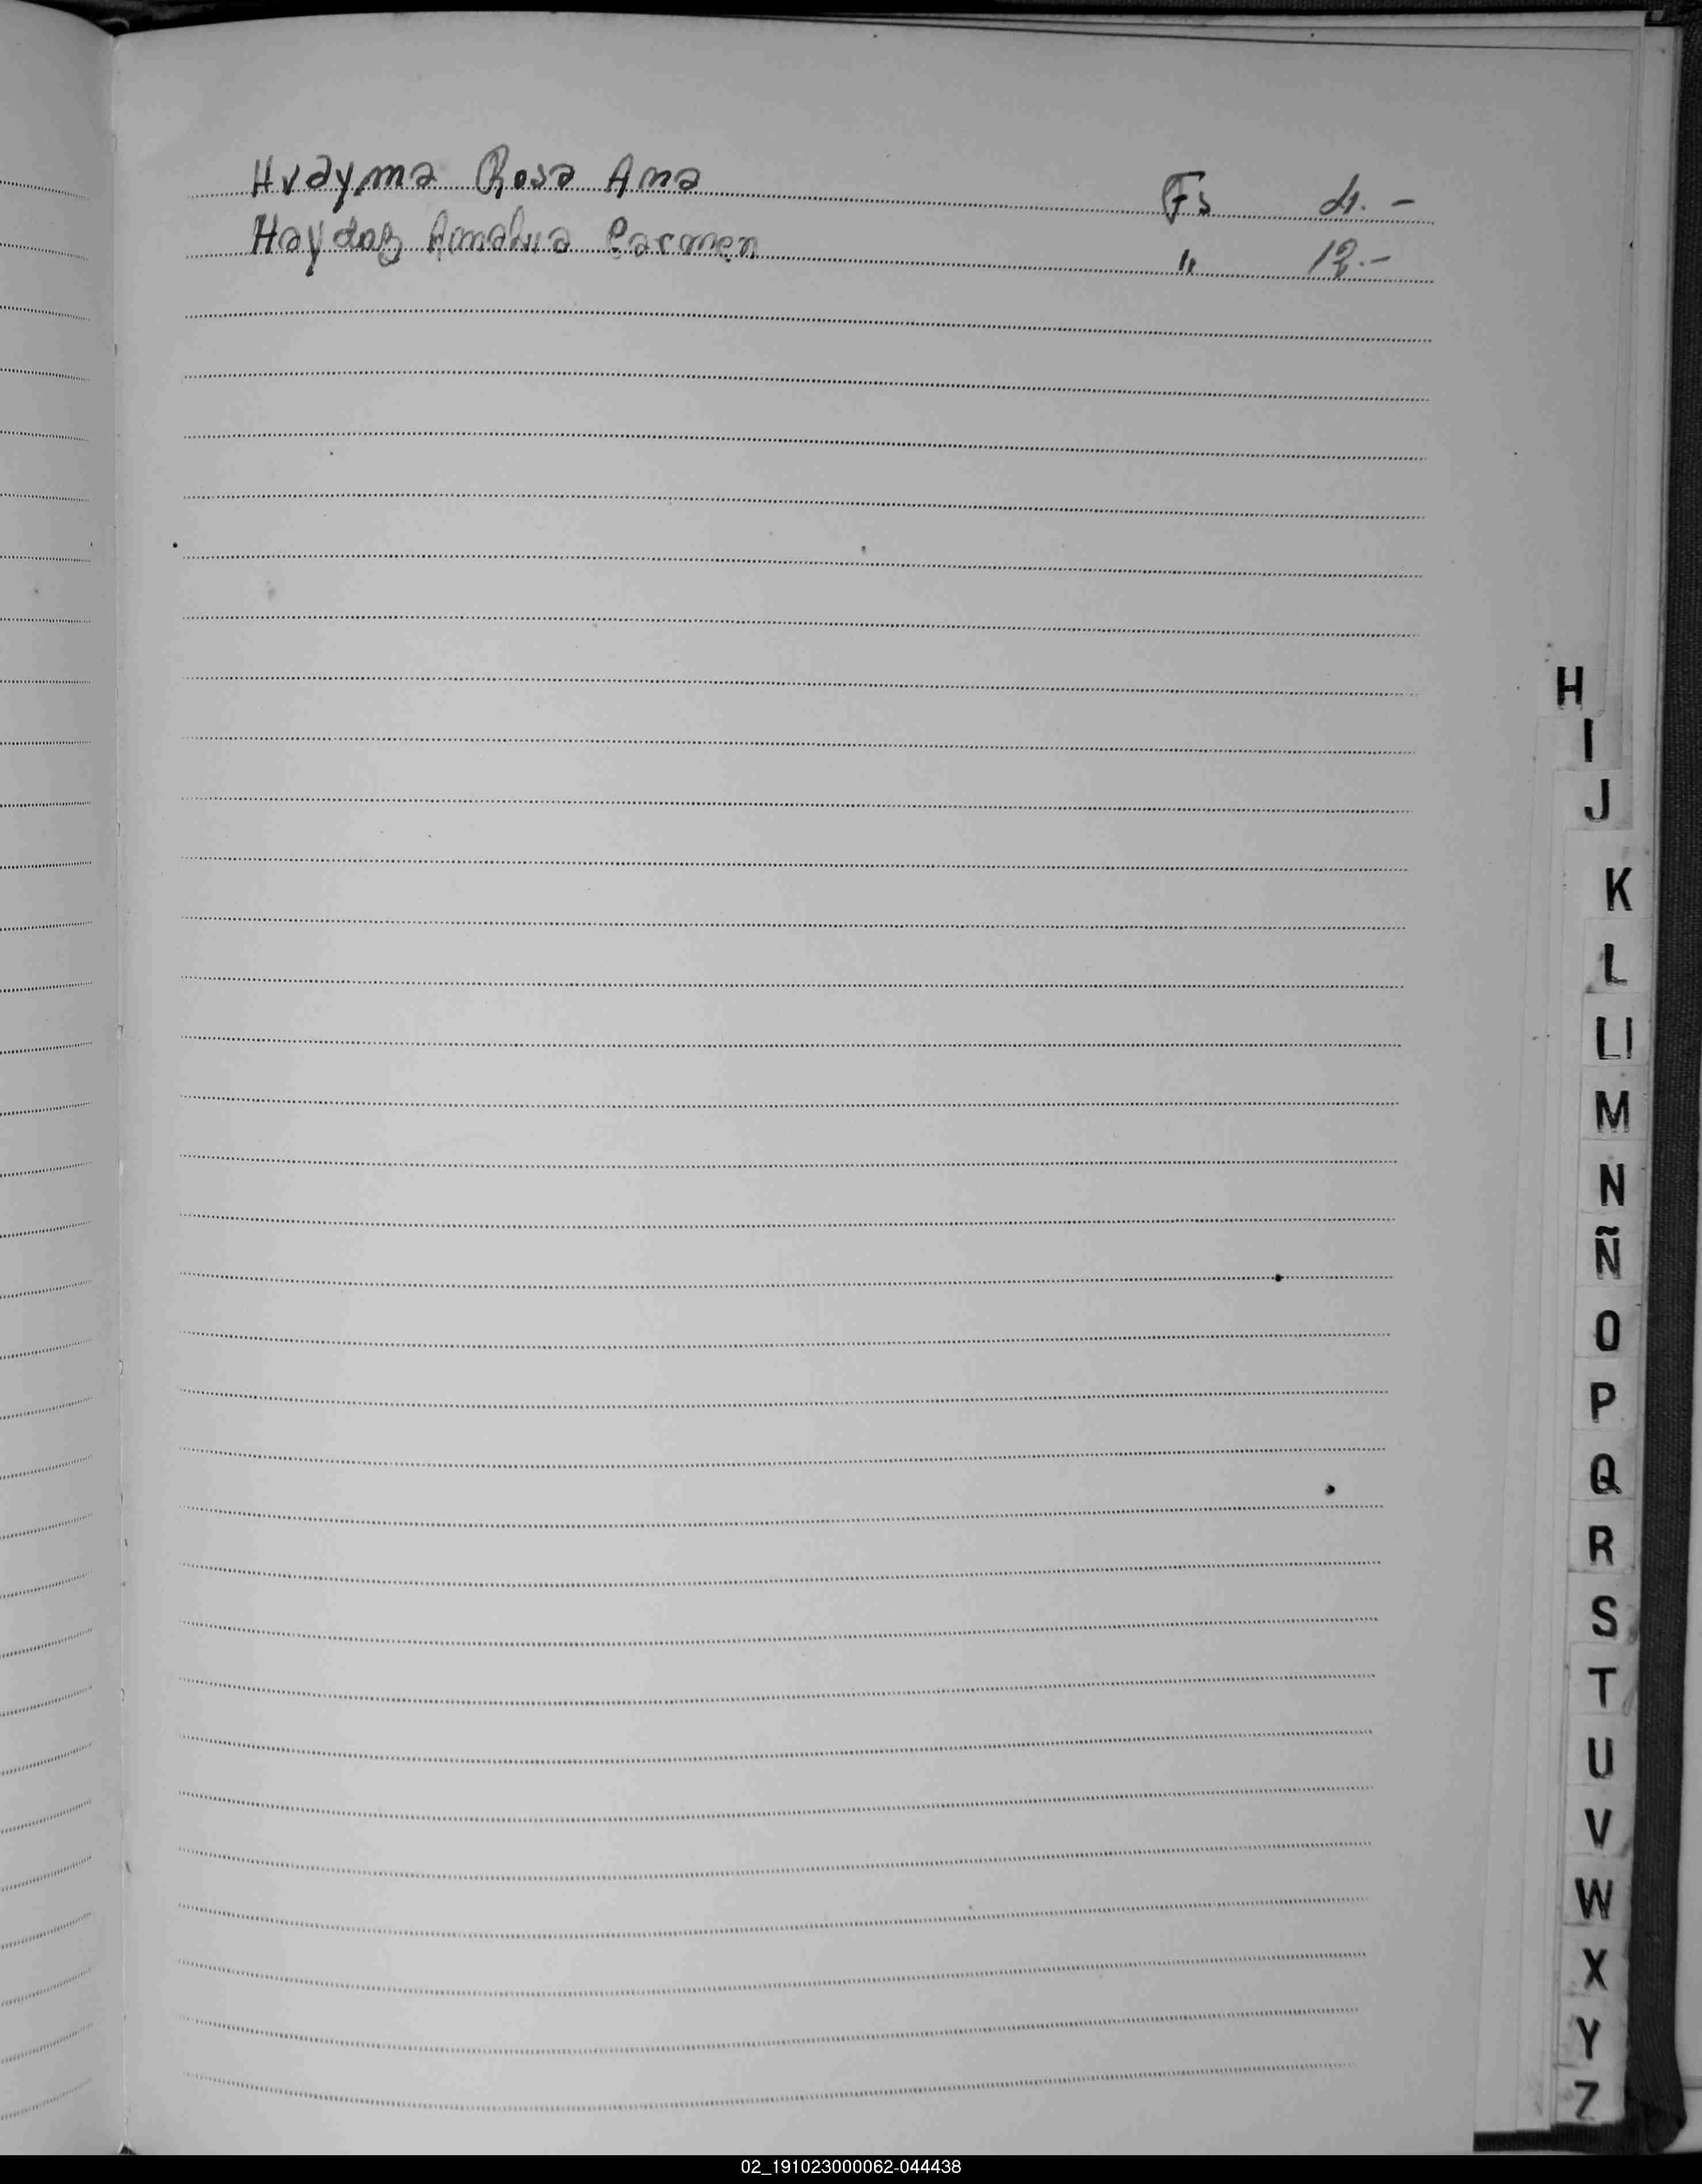 Hvayma Rosa Ana Fs 4.-
Haydar Amalia Carmen " 12.-
H
I
J
K
L
Ll
M
N
Ñ
O
P
Q
R
S
T
U
V
W
X
Y
Z
02_191023000062-044438